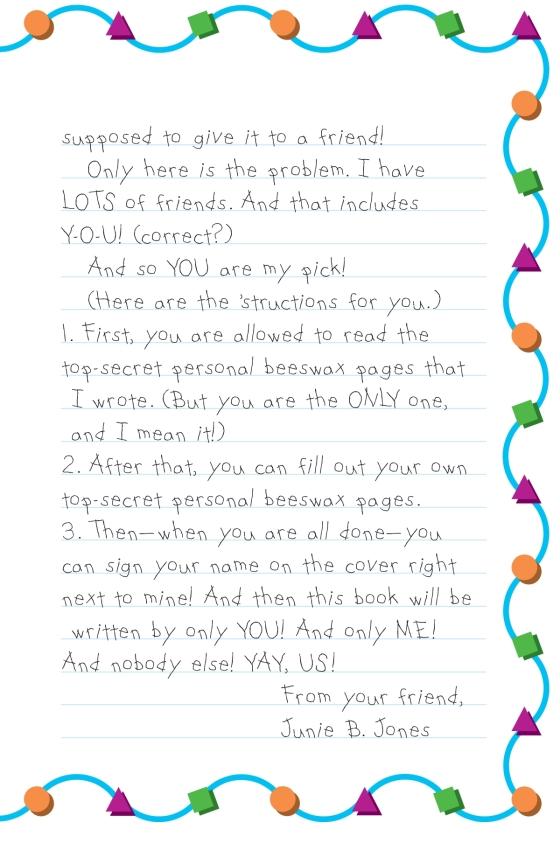 supposed to give it to a friend!
Only here is the problem. I have
LOTS of friends. And that includes
Y-O-U! (correct?)
And so YOU are my pick!
(Here are the 'structions for you.)
1. First, you are allowed to read the
top-secret personal beeswax pages that
I wrote. (But you are the ONLY one,
and I mean it!)
2. After that, you can fill out your own
top-secret personal beeswax pages.
3. Then—when you are all done—you
can sign your name on the cover right
next to mine! And then this book will be
written by only YOU! And only ME!
And nobody else! YAY, US!
From your friend,
Junie B. Jones